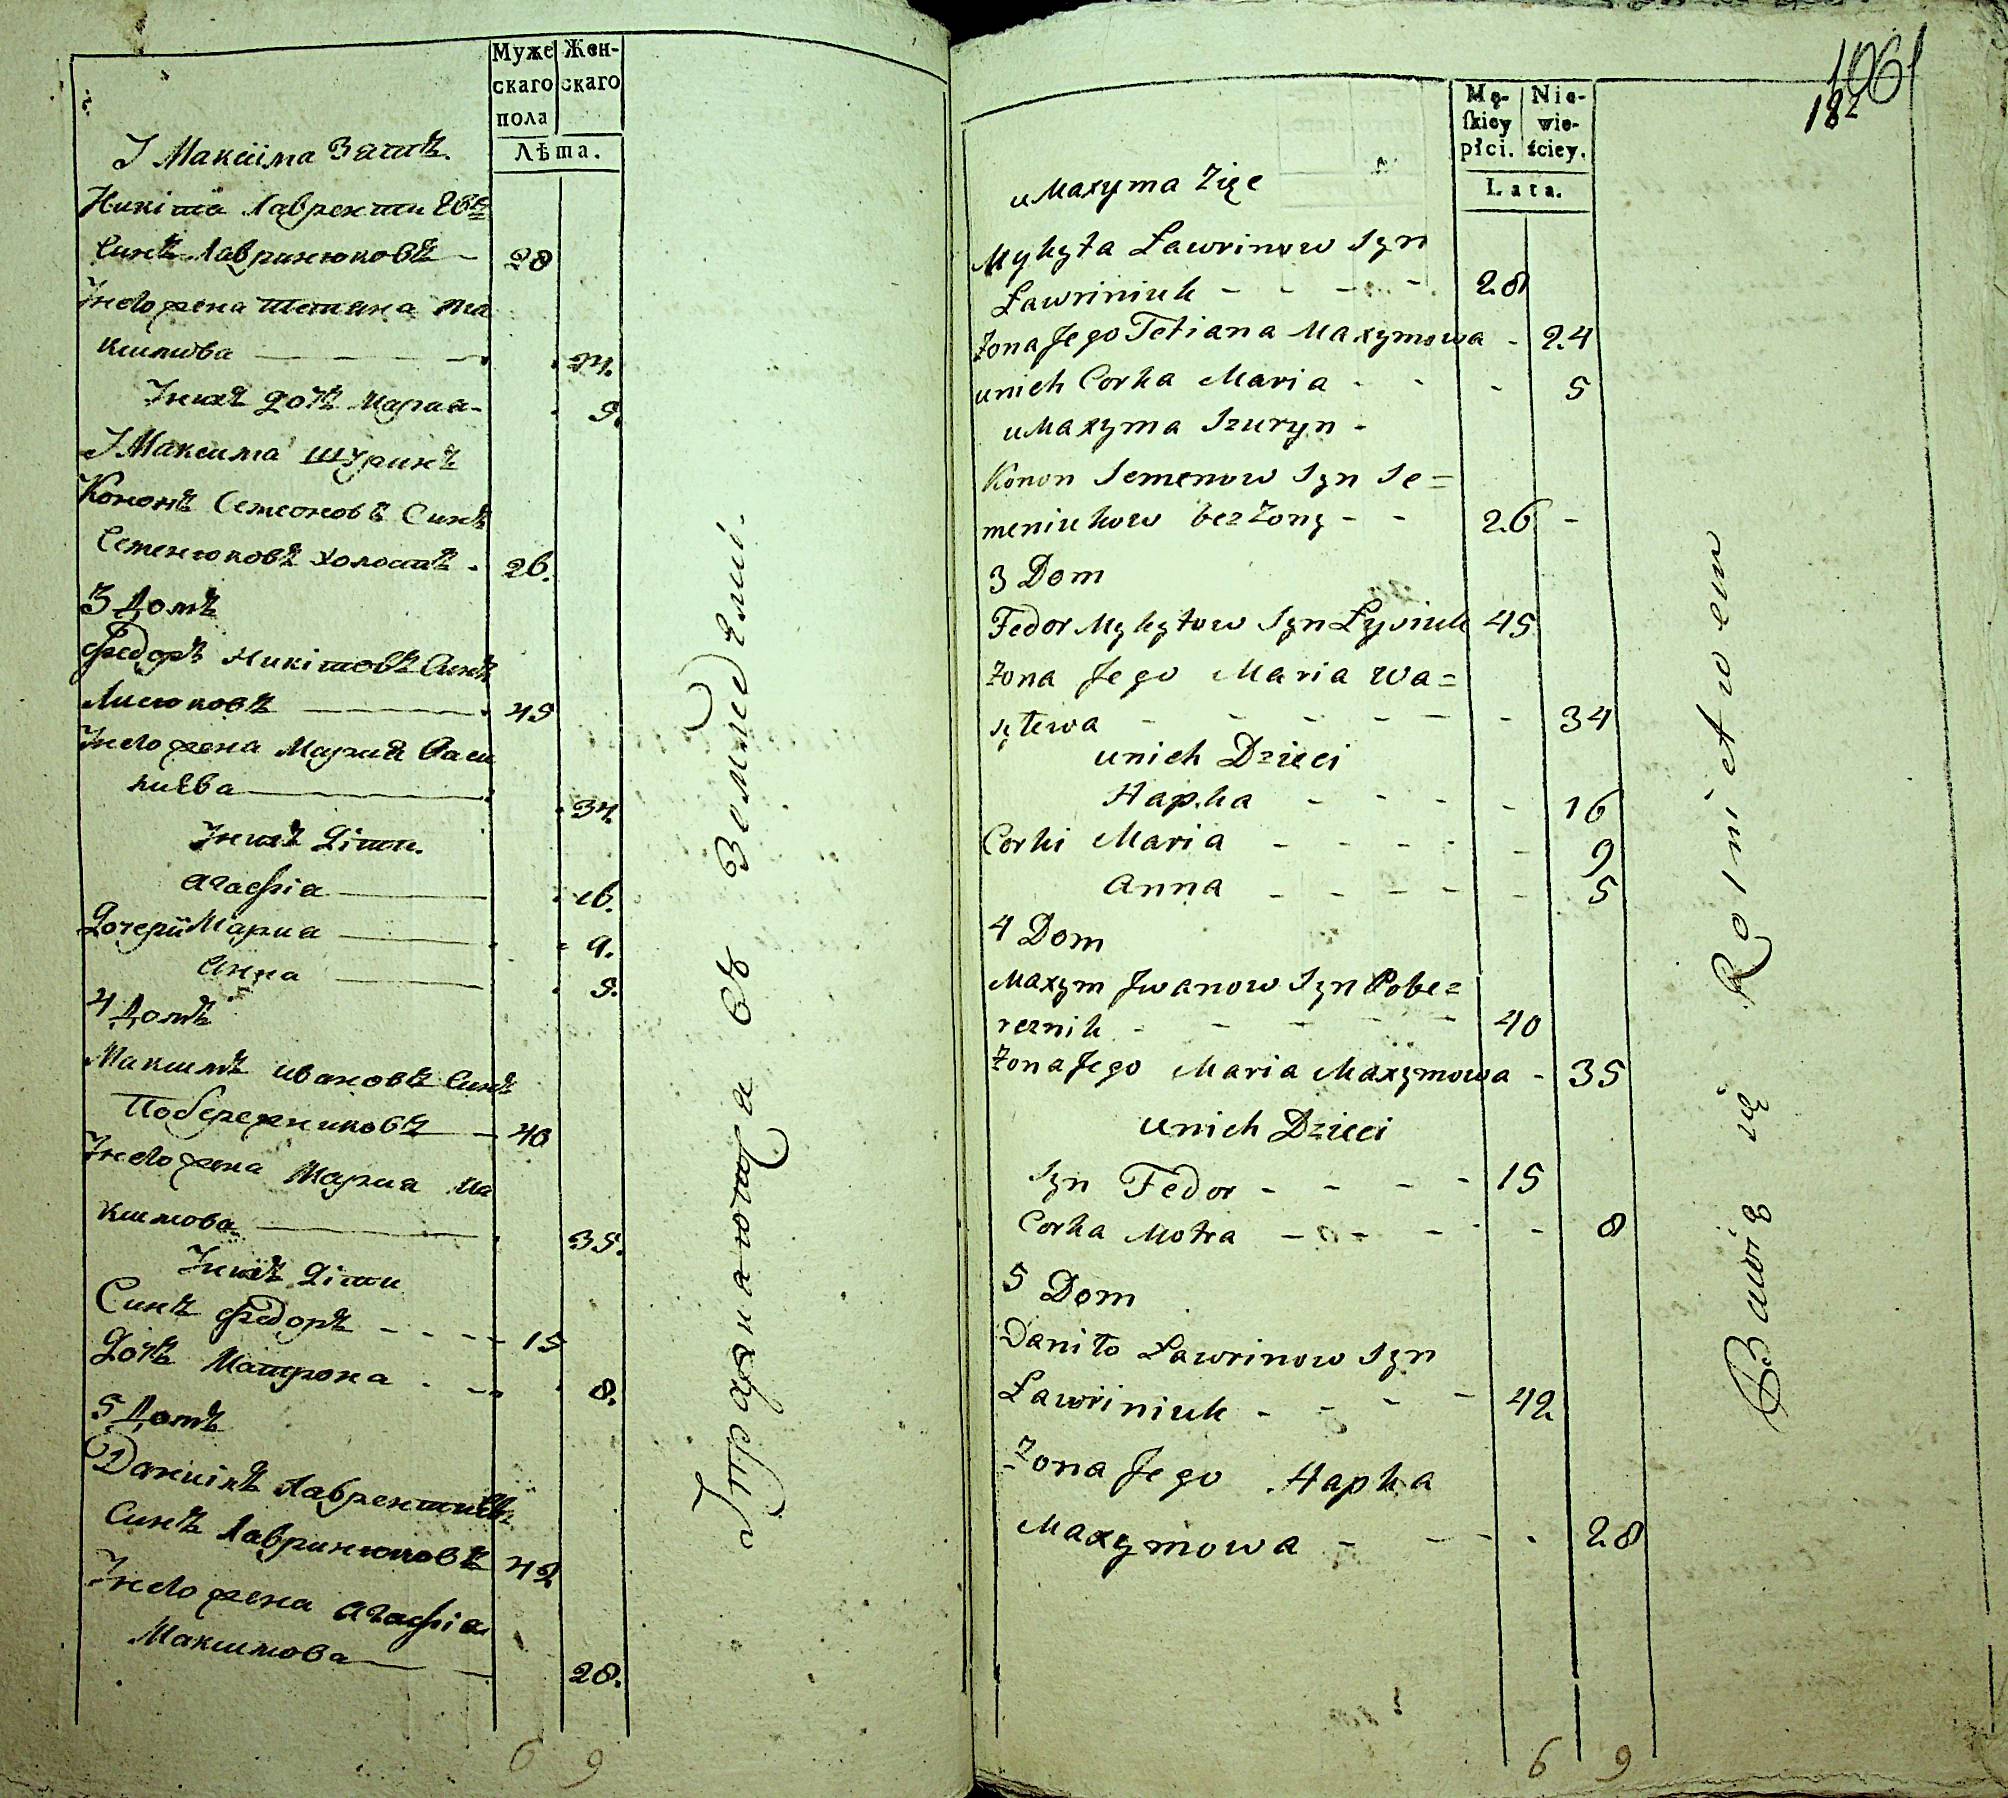 Муже Жен-
скаго скаго
пола
Лѣта.
У Максіма Зятъ.
Никіта Лаврентиевъ
Синъ Лавринюковъ — 28
Унего жена Тетяна Ма
ксимова — — — 24.
Унихъ дочъ Мариа - 5.
У Максима шуринъ
Кононъ Семеоновъ Синъ
Семенюковъ холостъ - 26.
3 Домъ
Федоръ Никітовъ Синъ
Лисюковъ — 45
Унего жена Мария Васи
лиева — 34.
Унихъ діти.
Агафія — 16.
Дочери Мариа — 9.
Анна — 5.
4 Домъ
Максимъ Ивановъ Синъ
Побережниковъ — 40
Унего жена Мариа Ма
ксимова — 35.
Унихъ діти
Синъ Федоръ - - - - 15
Дочъ Матрона - - 8.
5 Домъ
Даниілъ Лаврентиевъ
Синъ Лавринюковъ 42
Унего жена Агафія
Максимова — 28.
6 9
Упражнаются въ Земледеліи.
1061
182
Mę- Nie-
skiey wie-
płci. ściey.
Lata.
u Maxyma Zięć
Mykyta Ławrinow Syn
Ławriniuk - - - - 28
Zona Jego Tetiana Maxymowa - 24
unich Corka Maria - - - 5
u Maxyma Szuryn -
Konon Semenow Syn Se=
meniukow bez Zony - - 26 -
3 Dom
Fedor Mykytow Syn Łysiuk 45
Zona Jego Maria Wa=
sylewa - - - - - - 34
unich Dzieci
Hapka - - - - 16
Corki Maria - - - - - 9
Anna - - - - - 5
4 Dom
Maxym Jwanow Syn Pobe=
reznik - - - - - 40
Zona Jego Maria Maxymowa - 35
unich Dzieci
Syn Fedor - - - - 15
Corka Motra - - - - - 8
5 Dom
Daniło Ławrinow Syn
Ławriniuk - - - - 42
Zona Jego Hapka
Maxymowa - - - 28
6 9
Bawią się Rolnictwem